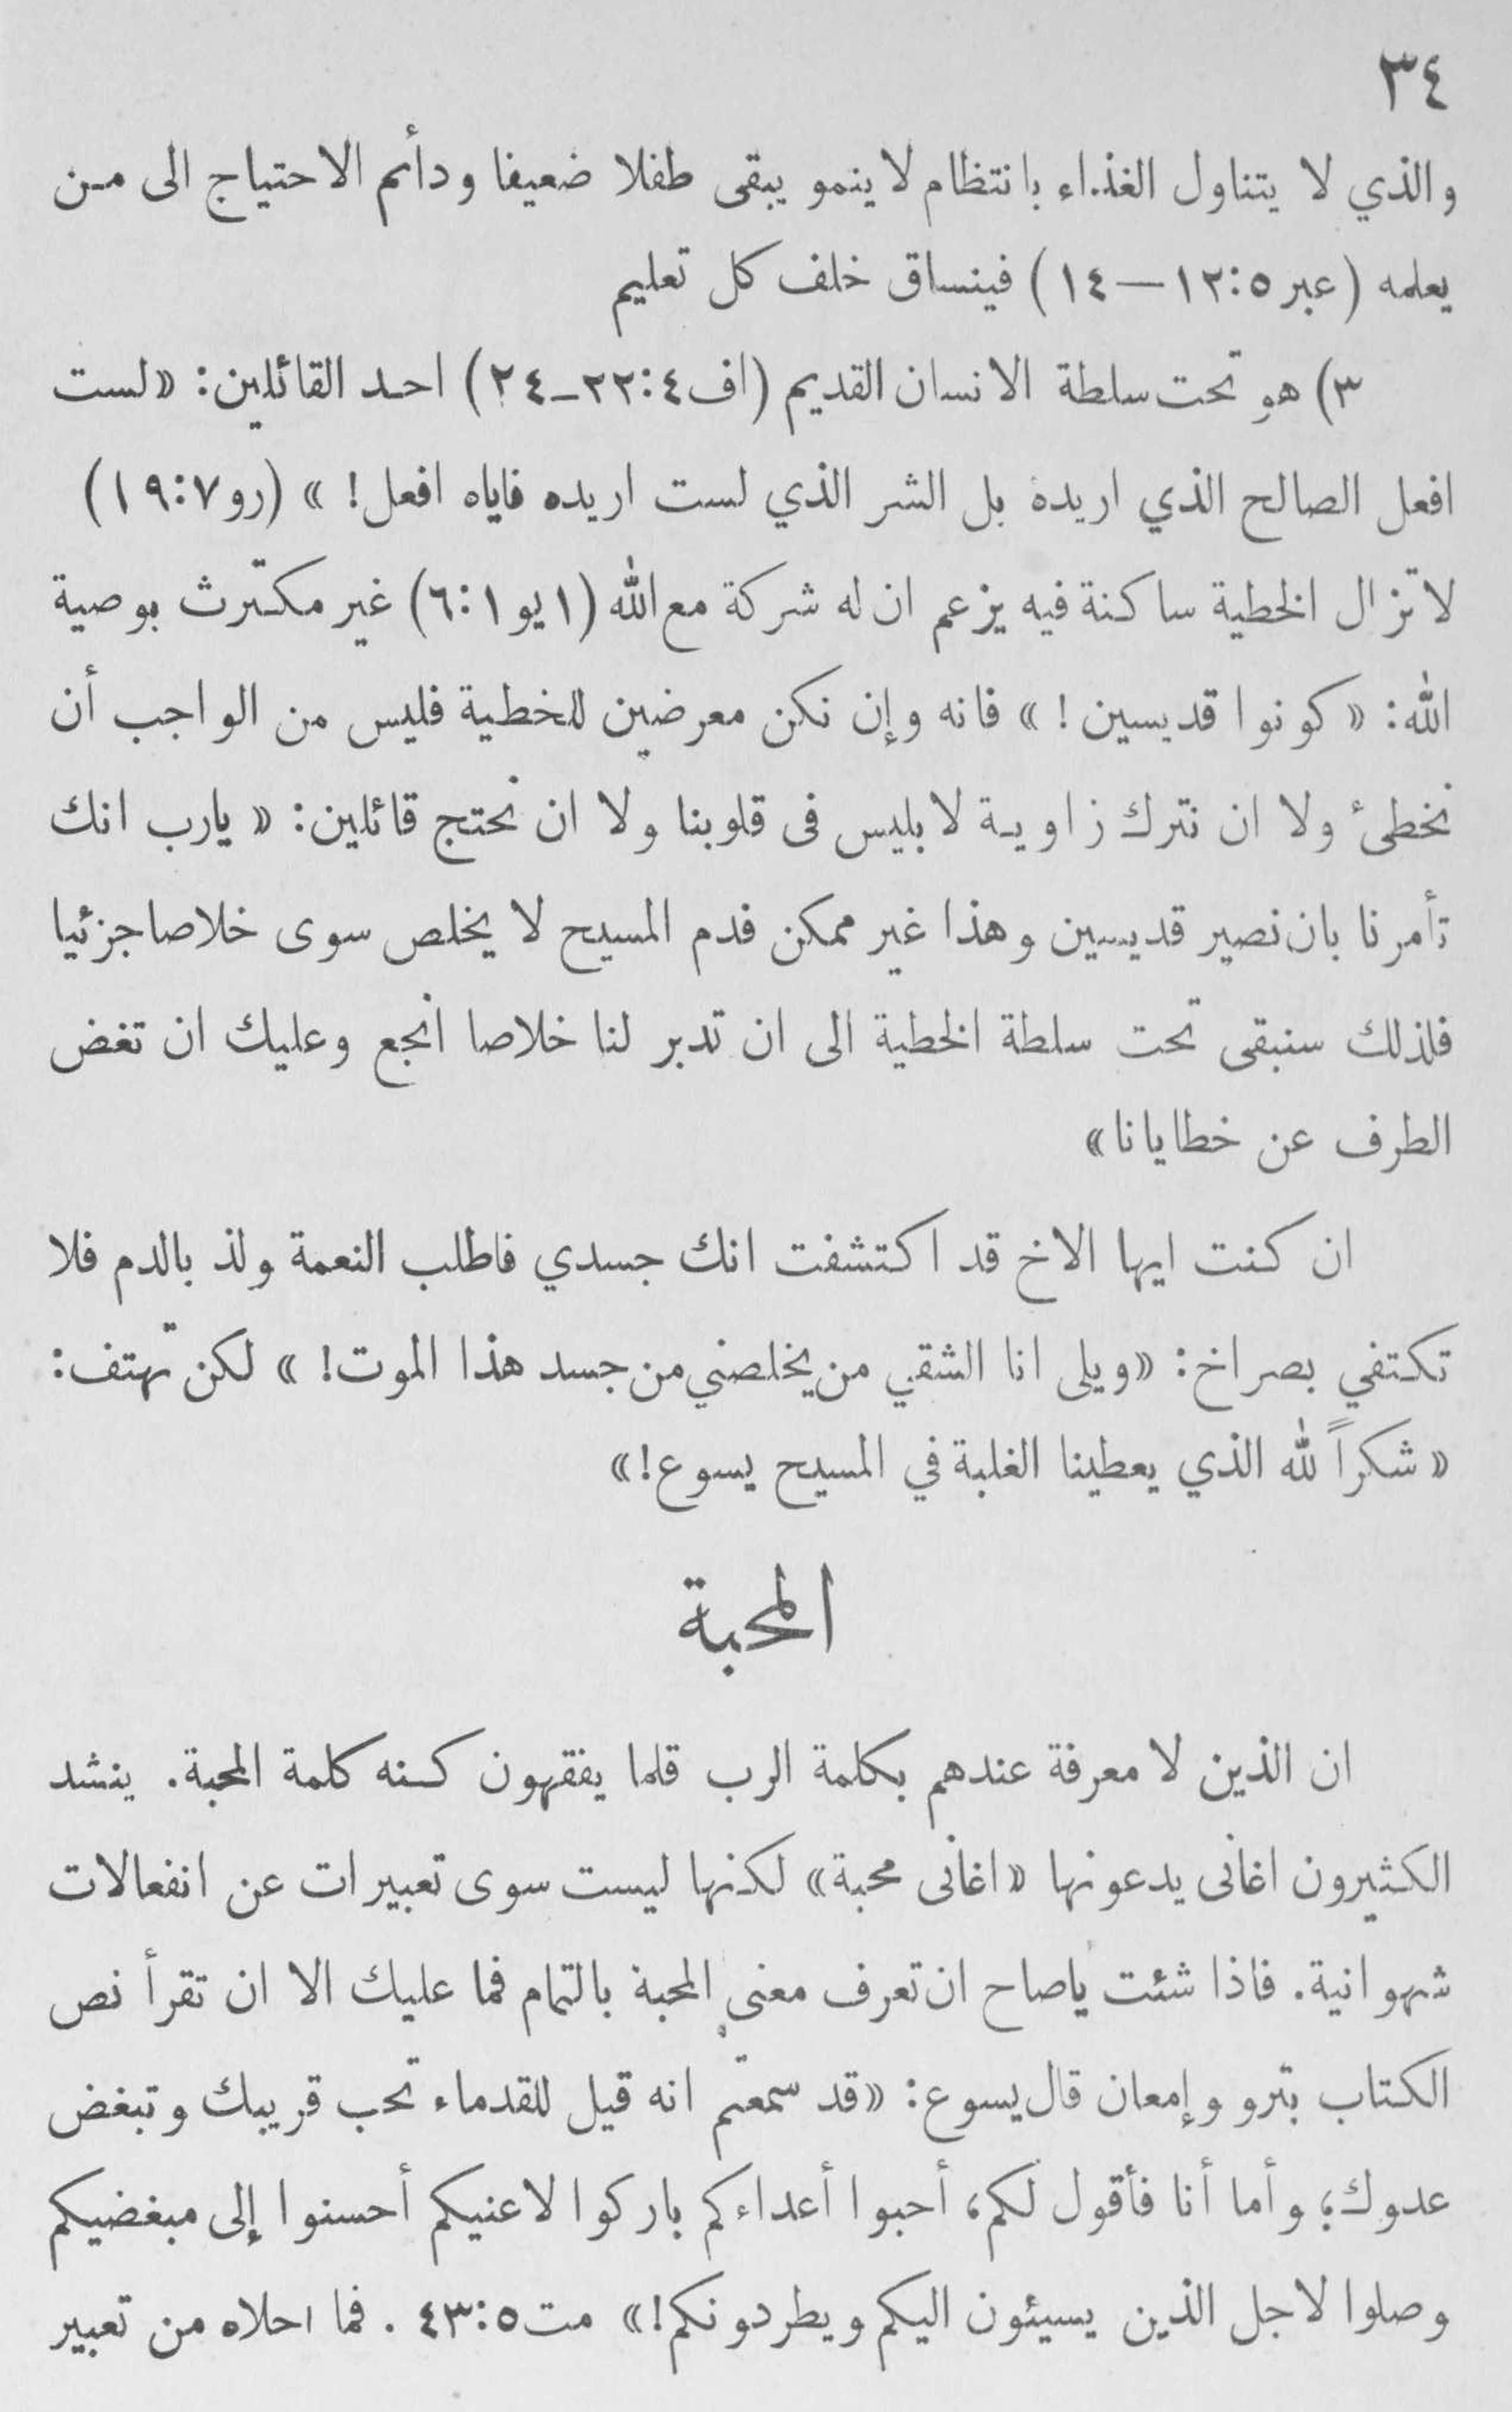 ٣٤
والذي لا يتناول الغذاء بانتظام لا ينمو يبقى طفلا ضعيفا ودأئم الاحتياج الى من
يعلمه (عبر ٥:١٢—١٤) فينساق خلف كل تعليم
٣) هو تحت سلطة الانسان القديم (اف ٤:٢٢ـ٢٤) احد القائلين: «لست
افعل الصالح الذي اريده بل الشر الذي لست اريده فاياه افعل! » (رو ٧:١٩)
لا تزال الخطية ساكنة فيه يزعم ان له شركة مع الله (١يو ١:٦) غير مكترث بوصية
الله: «كونوا قديسين! » فانه وإن نكن معرضين للخطية فليس من الواجب أن
نخطئ ولا ان نترك زاوية لابليس فى قلوبنا ولا ان نحتج قائلين: «يارب انك
تأمرنا بان نصير قديسين وهذا غير ممكن فدم المسيح لا يخلص سوى خلاصا جزئيا
فلذلك سنبقى تحت سلطة الخطية الى ان تدبر لنا خلاصا انجع وعليك ان تغض
الطرف عن خطايانا»
ان كنت ايها الاخ قد اكتشفت انك جسدي فاطلب النعمة ولذ بالدم فلا
تكتفي بصراخ: «ويلى انا الشقي من يخلصني من جسد هذا الموت! » لكن تهتف:
«شكراً لله الذي يعطينا الغلبة في المسيح يسوع!»
المحبة
ان الذين لا معرفة عندهم بكلمة الرب قلما يفقهون كنه كلمة المحبة. ينشد
الكثيرون اغانى يدعونها «اغانى محبة» لكنها ليست سوى تعبيرات عن انفعالات
شهوانية. فاذا شئت ياصاح ان تعرف معنى المحبة بالتمام فما عليك الا ان تقرأ نص
الكتاب بترو وإمعان قال يسوع: «قد سمعتم انه قيل للقدماء تحب قريبك وتبغض
عدوك؛ وأما أنا فأقول لكم، أحبوا أعداءكم باركوا لاعنيكم أحسنوا إلى مبغضيكم
وصلوا لاجل الذين يسيئون اليكم ويطردونكم!» مت ٥:٤٣ . فما احلاه من تعبير